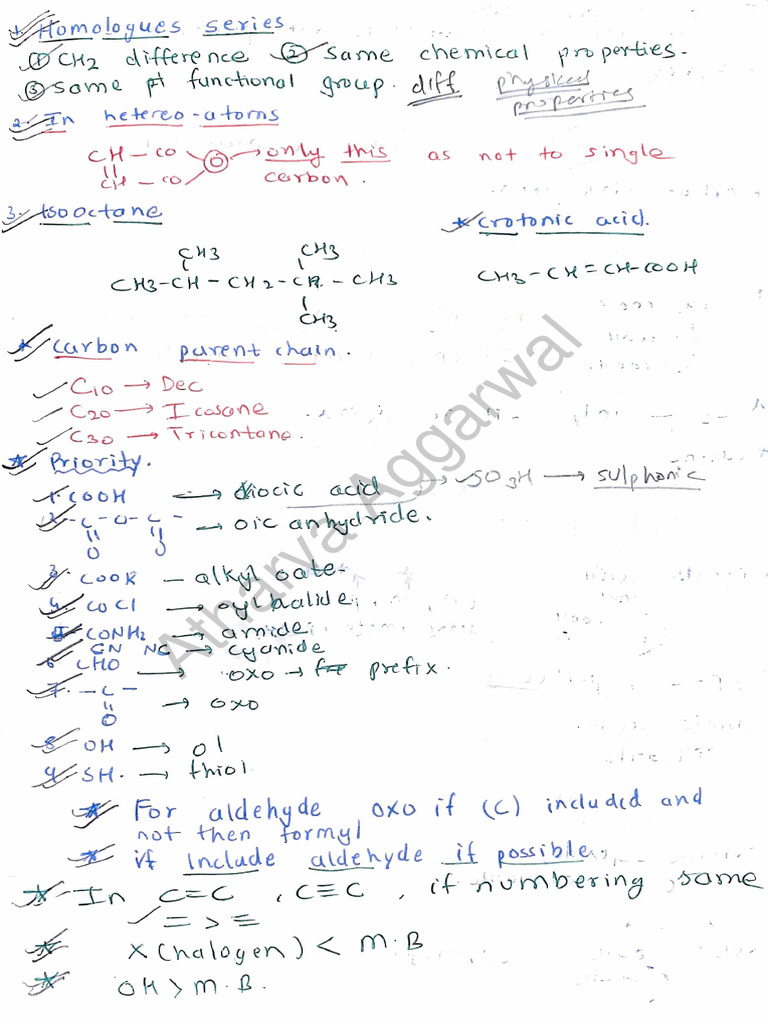 1. Homologues series.
① CH2 difference ② Same chemical properties.
③ Same functional group. diff physical properties
2. In hetereo-atoms
CH - CO
O → only this as not to single
CH - CO carbon.
3. Isooctane * crotonic acid.
CH3 CH3
CH3-CH-CH2-C-CH3 CH3-CH=CH-COOH
CH3
* Carbon parent chain.
C10 → Dec
C20 → Icosane
C30 → Tricontane.
* Priority.
1. COOH → acid → SO3H → sulphonic
2. -C-O-C- → oic anhydride.
O O
3. COOR - alkyl oate
4. COCl → oylhalide
5. CONH2 → amide
CN NC → cyanide
6. CHO → oxo → prefix.
7. -C- → oxo
O
8. OH → ol
9. SH. → thiol
* For aldehyde oxo if (C) included and
not then formyl
* if include aldehyde if possible.
* In C=C, C≡C, if numbering same
= > ≡
* X (halogen) < M.B
* OH > M.B.
Atharva Aggarwal